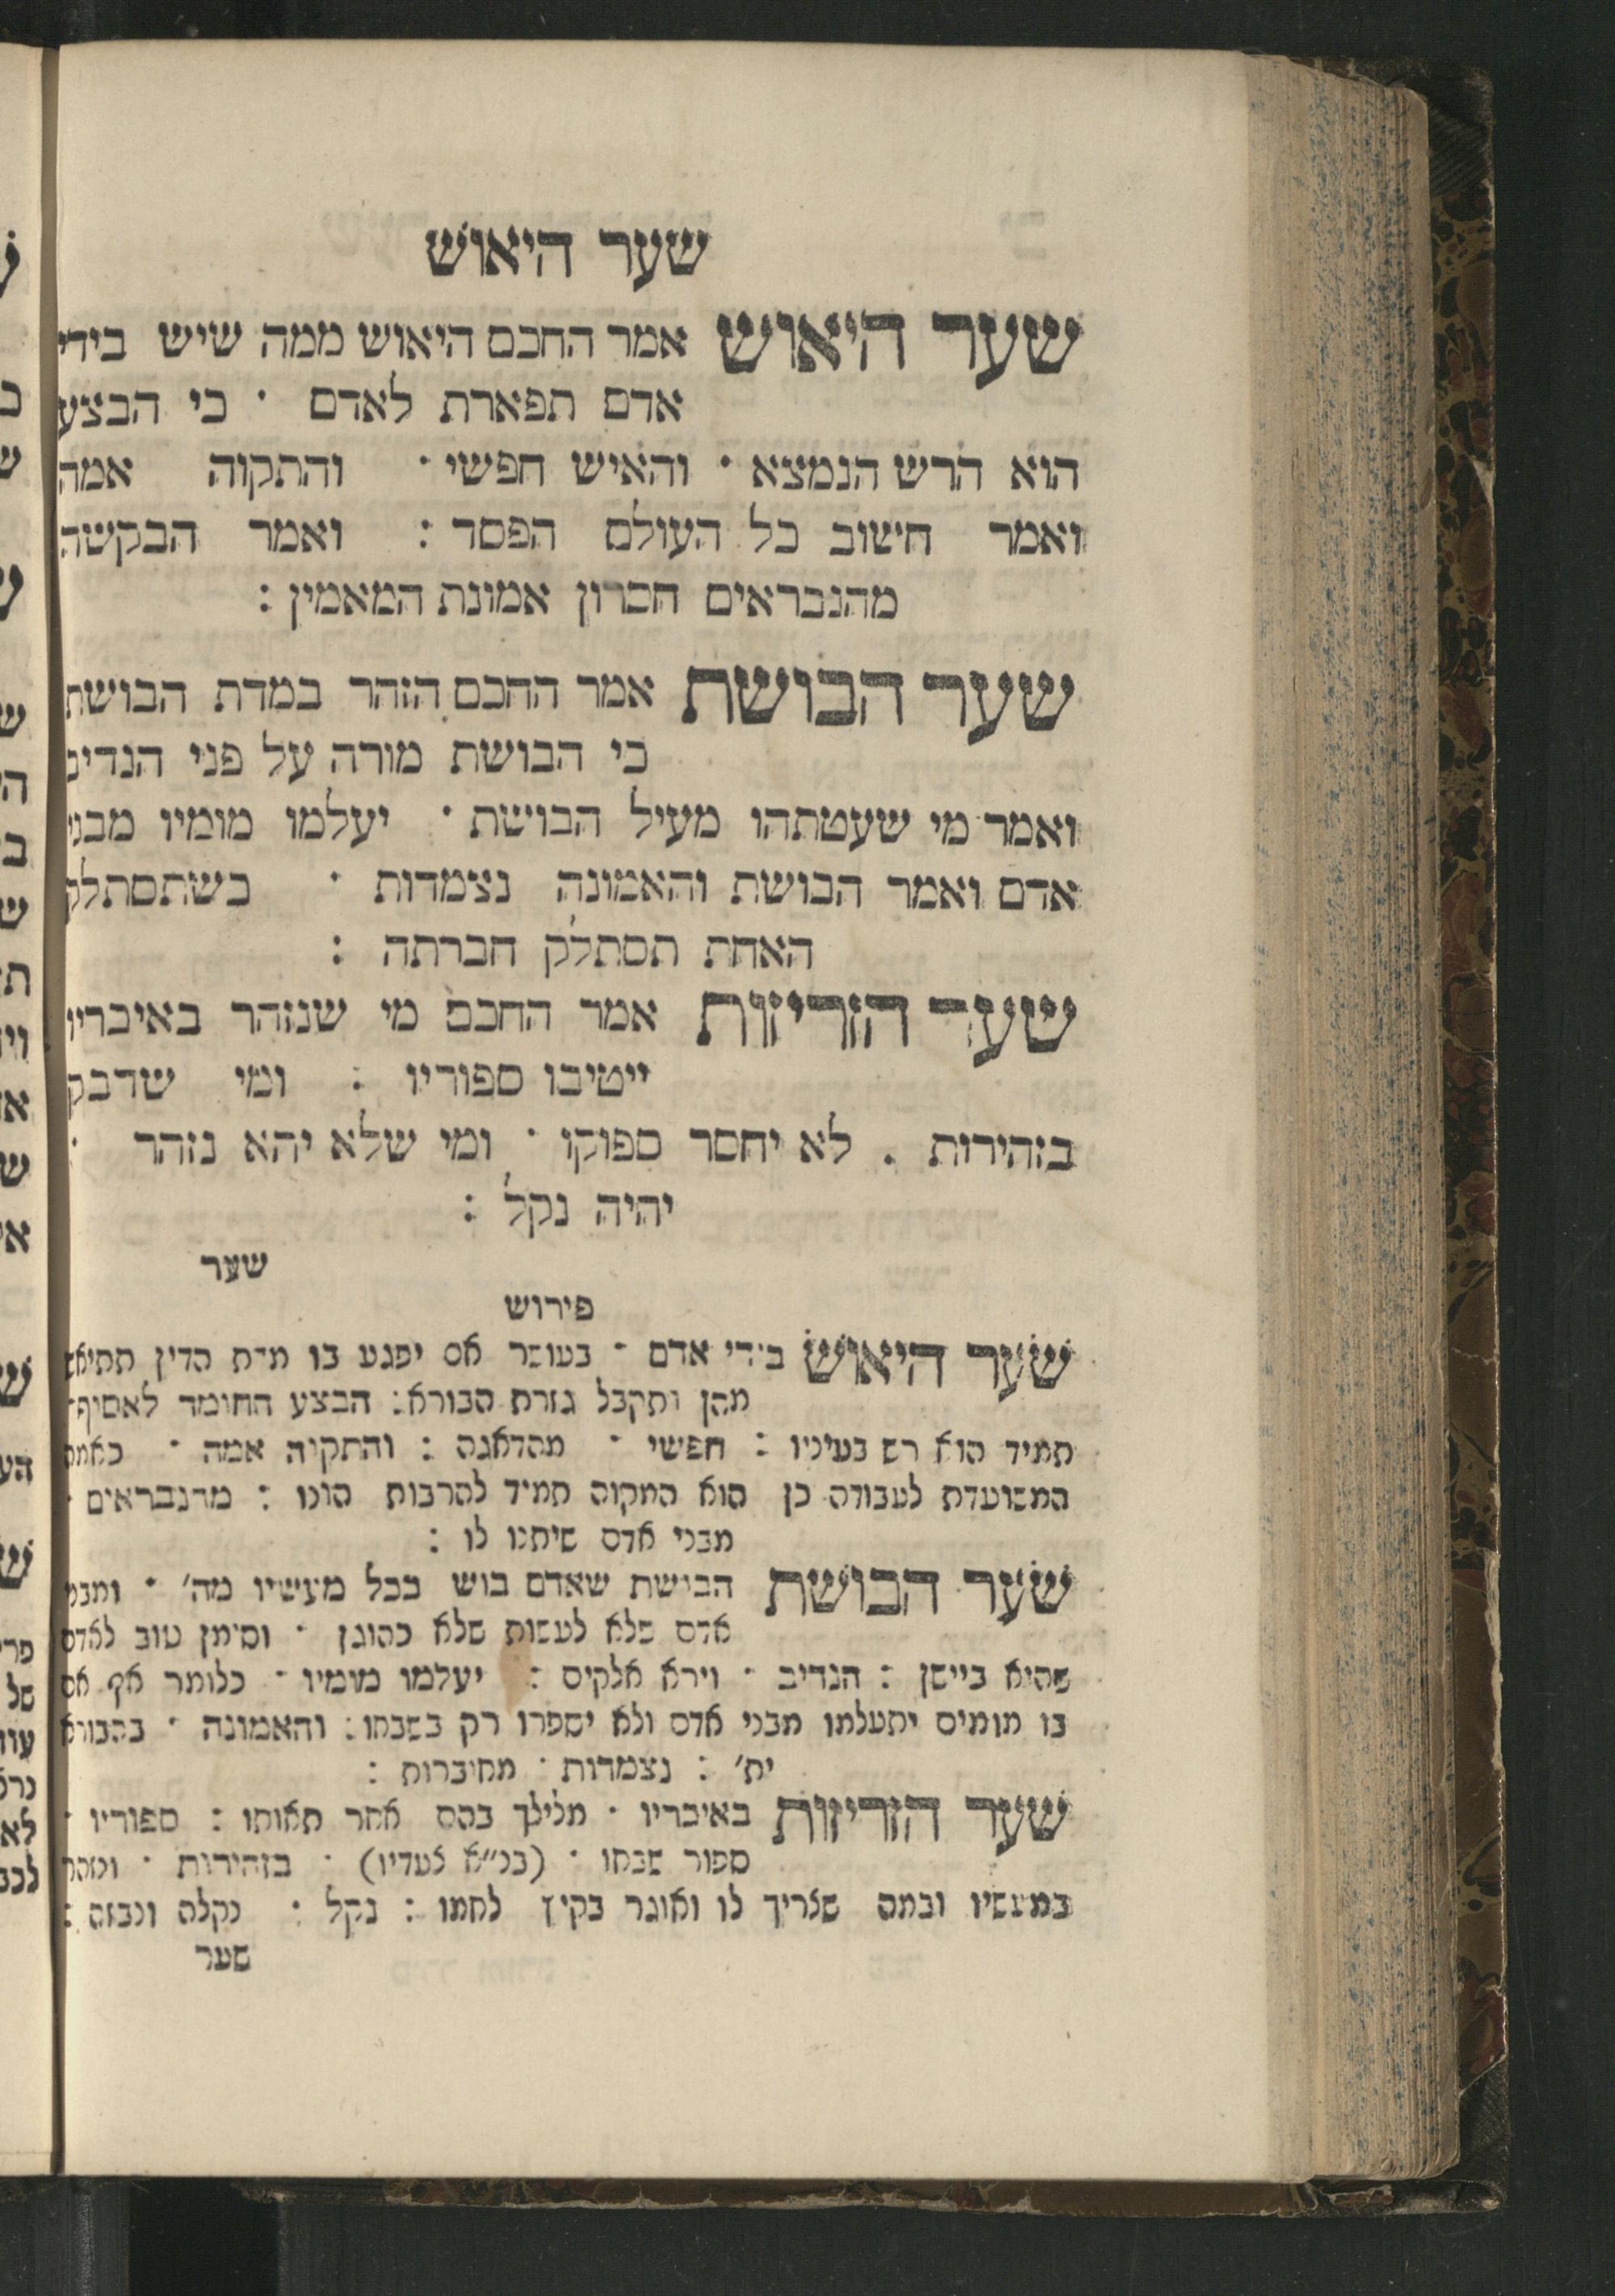 שער היאוש
שער היאוש אמר החכם היאוש ממה שיש בידי
אדם תפארת לאדם · כי הבצע
הוא הרש הנמצא · והאיש חפשי · והתקוה אמה
ואמר חישוב כל העולם הפסד : ואמר הבקשה
מהנבראים חסרון אמונת המאמין :
שער הבושת אמר החכם הזהר במדת הבושת
כי הבושת מורה על פני הנדיב
ואמר מי שעטתהו מעיל הבושת · יעלמו מומיו מבני
אדם ואמר הבושת והאמונה נצמדות · כשתסתלק
האחת תסתלק חברתה :
שער הזריזות אמר החכם מי שנזהר באיבריו
ייטיבו ספוריו : ומי שדבק
בזהירות . לא יחסר ספוקו · ומי שלא יהא נזהר ·
יהיה נקל :
שער
פירוש
שער היאוש בידי אדם · בעושר אם יפגע בו מדת הדין תתיאש
מהן ותקבל גזרת הבורא : הבצע החומד לאסוף·
תמיד הוא רש בעיניו : חפשי · מהדאגה : והתקוה אמה · כאמה
המשועדת לעבודה כן הוא המקוה תמיד להרבות הונו : מהנבראים ·
מבני אדם שיתנו לו :
שער הבושת הבושת שאדם בוש בכל מעשיו מה׳ · ומבני
אדם שלא לעשות שלא כהוגן · וסימן טוב לאדם
שהיא ביישן : הנדיב · וירא אלקים : יעלמו מומיו · כלומר אף אם
בו מומים יתעלמו מבני אדם ולא יספרו רק בשבחו : והאמונה · בהבורא
ית׳ : נצמדות · מחוברות :
שער הזריזות באיבריו · מלילך בהם אחר תאותו : ספוריו ·
ספור שבחו · (בנ״א צעדיו) · בזהירות ·
במעשיו ובמה שצריך לו ואוגר בקיץ לחמו : נקל · נקלה ונבזה :
שער